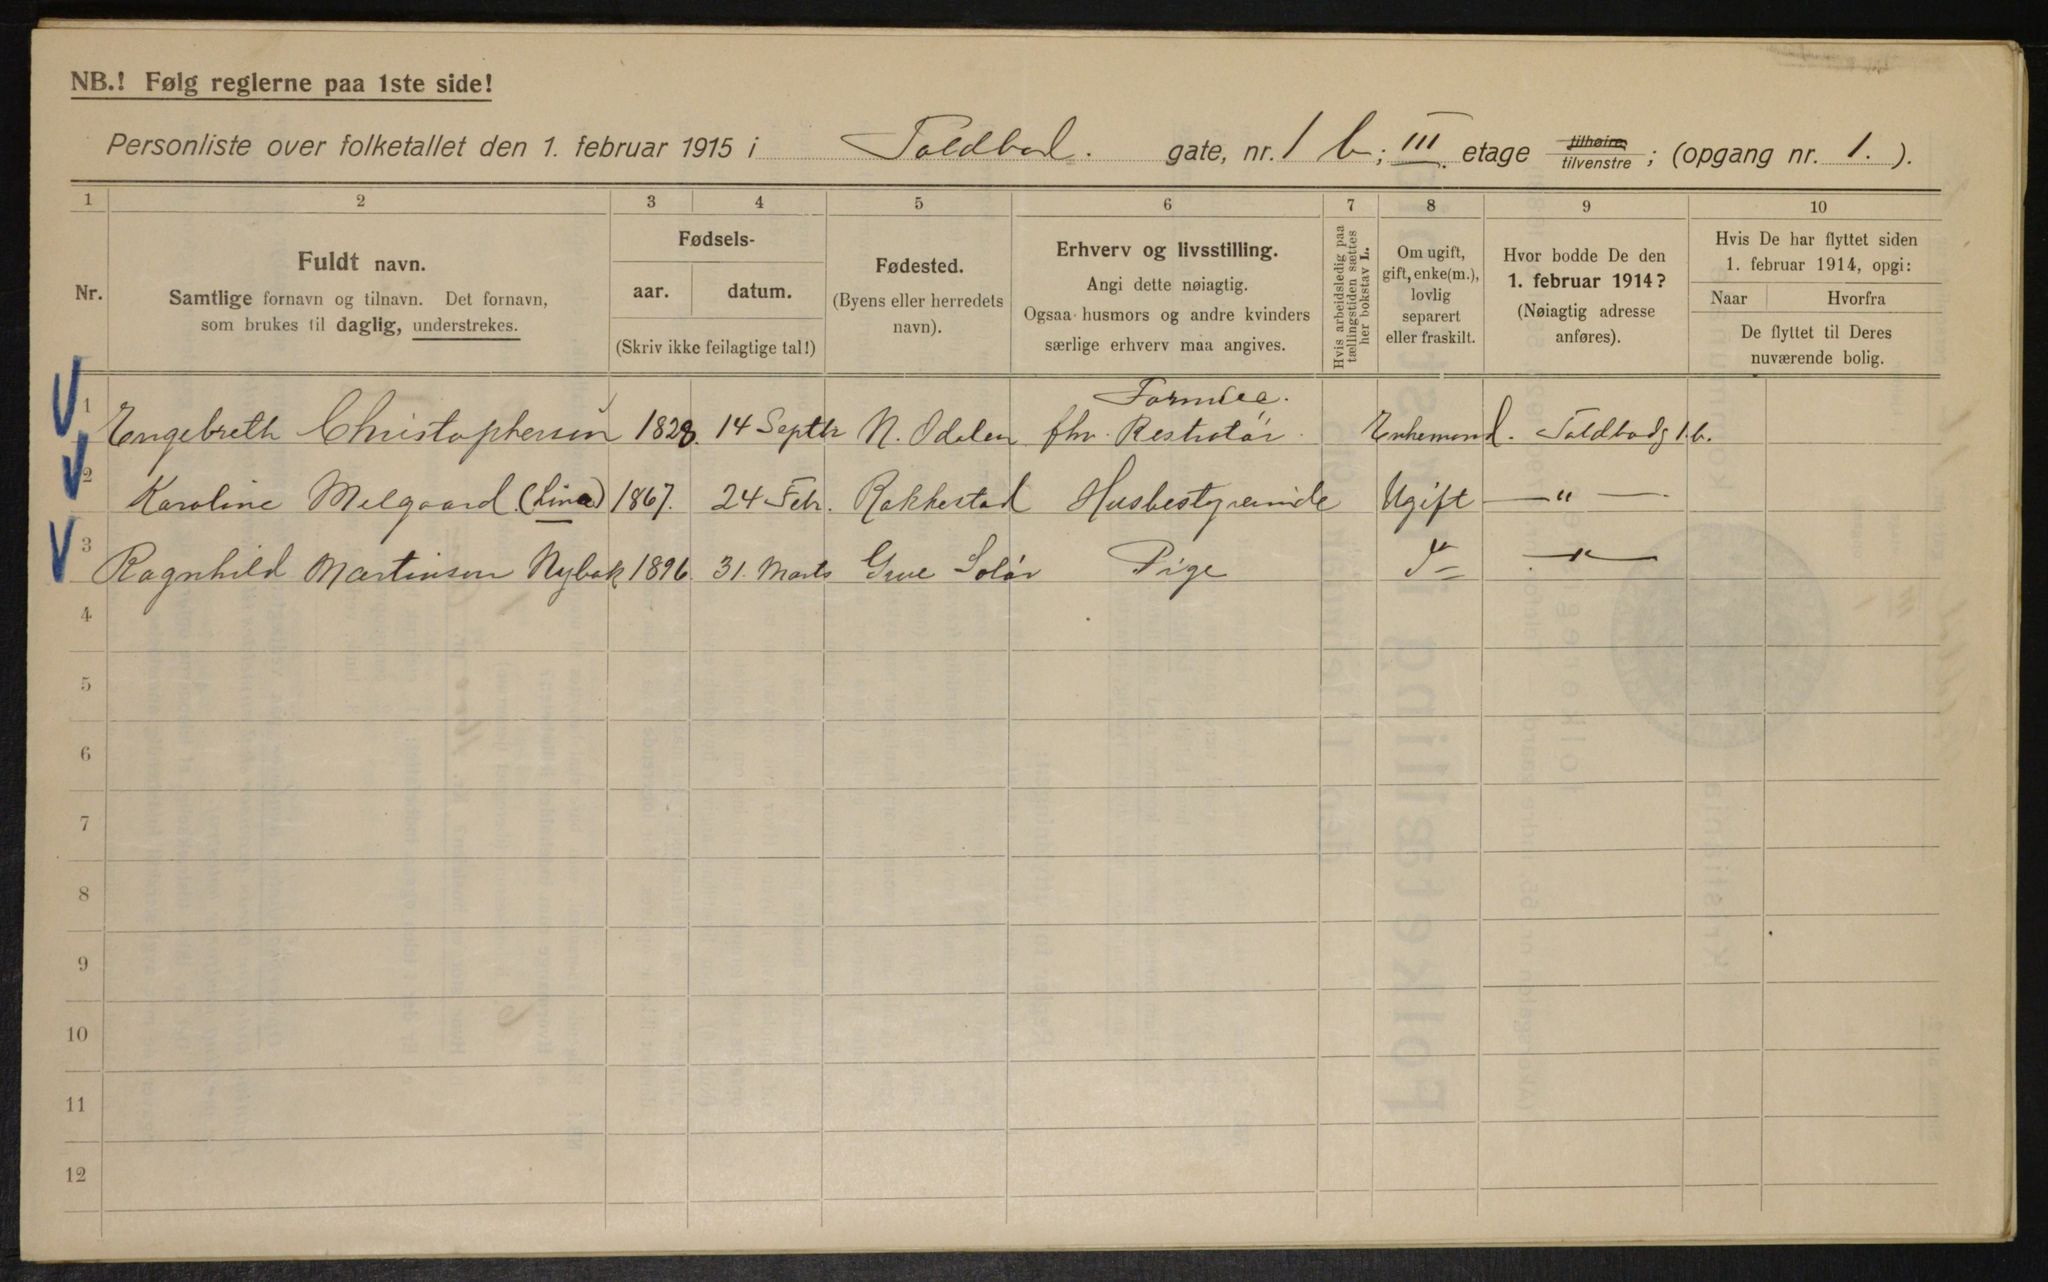 NB.! Følg reglerne paa 1ste side!
Personliste over folketallet den 1. februar 1915 i Toldbod. gate, nr. 1 b; III etage tilhøire/tilvenstre; (opgang nr. 1.).
1 2 3 4 5 6 7 8 9 10
Nr.
Fuldt navn.
Samtlige fornavn og tilnavn. Det fornavn,
som brukes til daglig, understrekes.
Fødsels-
aar. datum.
(Skriv ikke feilagtige tal!)
Fødested.
(Byens eller herredets
navn).
Erhverv og livsstilling.
Angi dette nøiagtig.
Ogsaa husmors og andre kvinders
særlige erhverv maa angives.
Hvis arbeidsledig paa
tællingstiden sættes
her bokstav L.
Om ugift,
gift, enke(m.),
lovlig
separert
eller fraskilt.
Hvor bodde De den
1. februar 1914?
(Nøiagtig adresse
anføres).
Hvis De har flyttet siden
1. februar 1914, opgi:
Naar Hvorfra
De flyttet til Deres
nuværende bolig.
1 Engebreth Christophersen 1828. 14 Septbr N. Odalen fhv. Restratør. Enkemand. Toldbodg 1.b.
2 Karoline Melgaard. (Lina) 1867. 24 Febr. Rakkestad Husbestyrerinde Ugift —"—
3 Ragnhild Martinsen Nybak 1896. 31. Marts Grue Solør Pige —"—
4
5
6
7
8
9
10
11
12